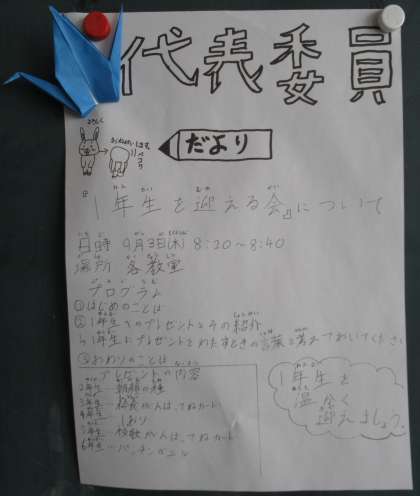 代表委員
だより
『1年生を迎える会』について
日時 9月3日(木) 8:20~8:40
場所 各教室
プログラム
①はじめのことば
②1年生へのプレゼントとその紹介
1年生にプレゼントをわたすときの言葉を考えておいてください
③おわりのことば
プレゼントの内容
2年生… 朝顔の種
3年生…
4年生… しおり
5年生… 校歌
6年生…
1年生を
温かく
迎えましょう。